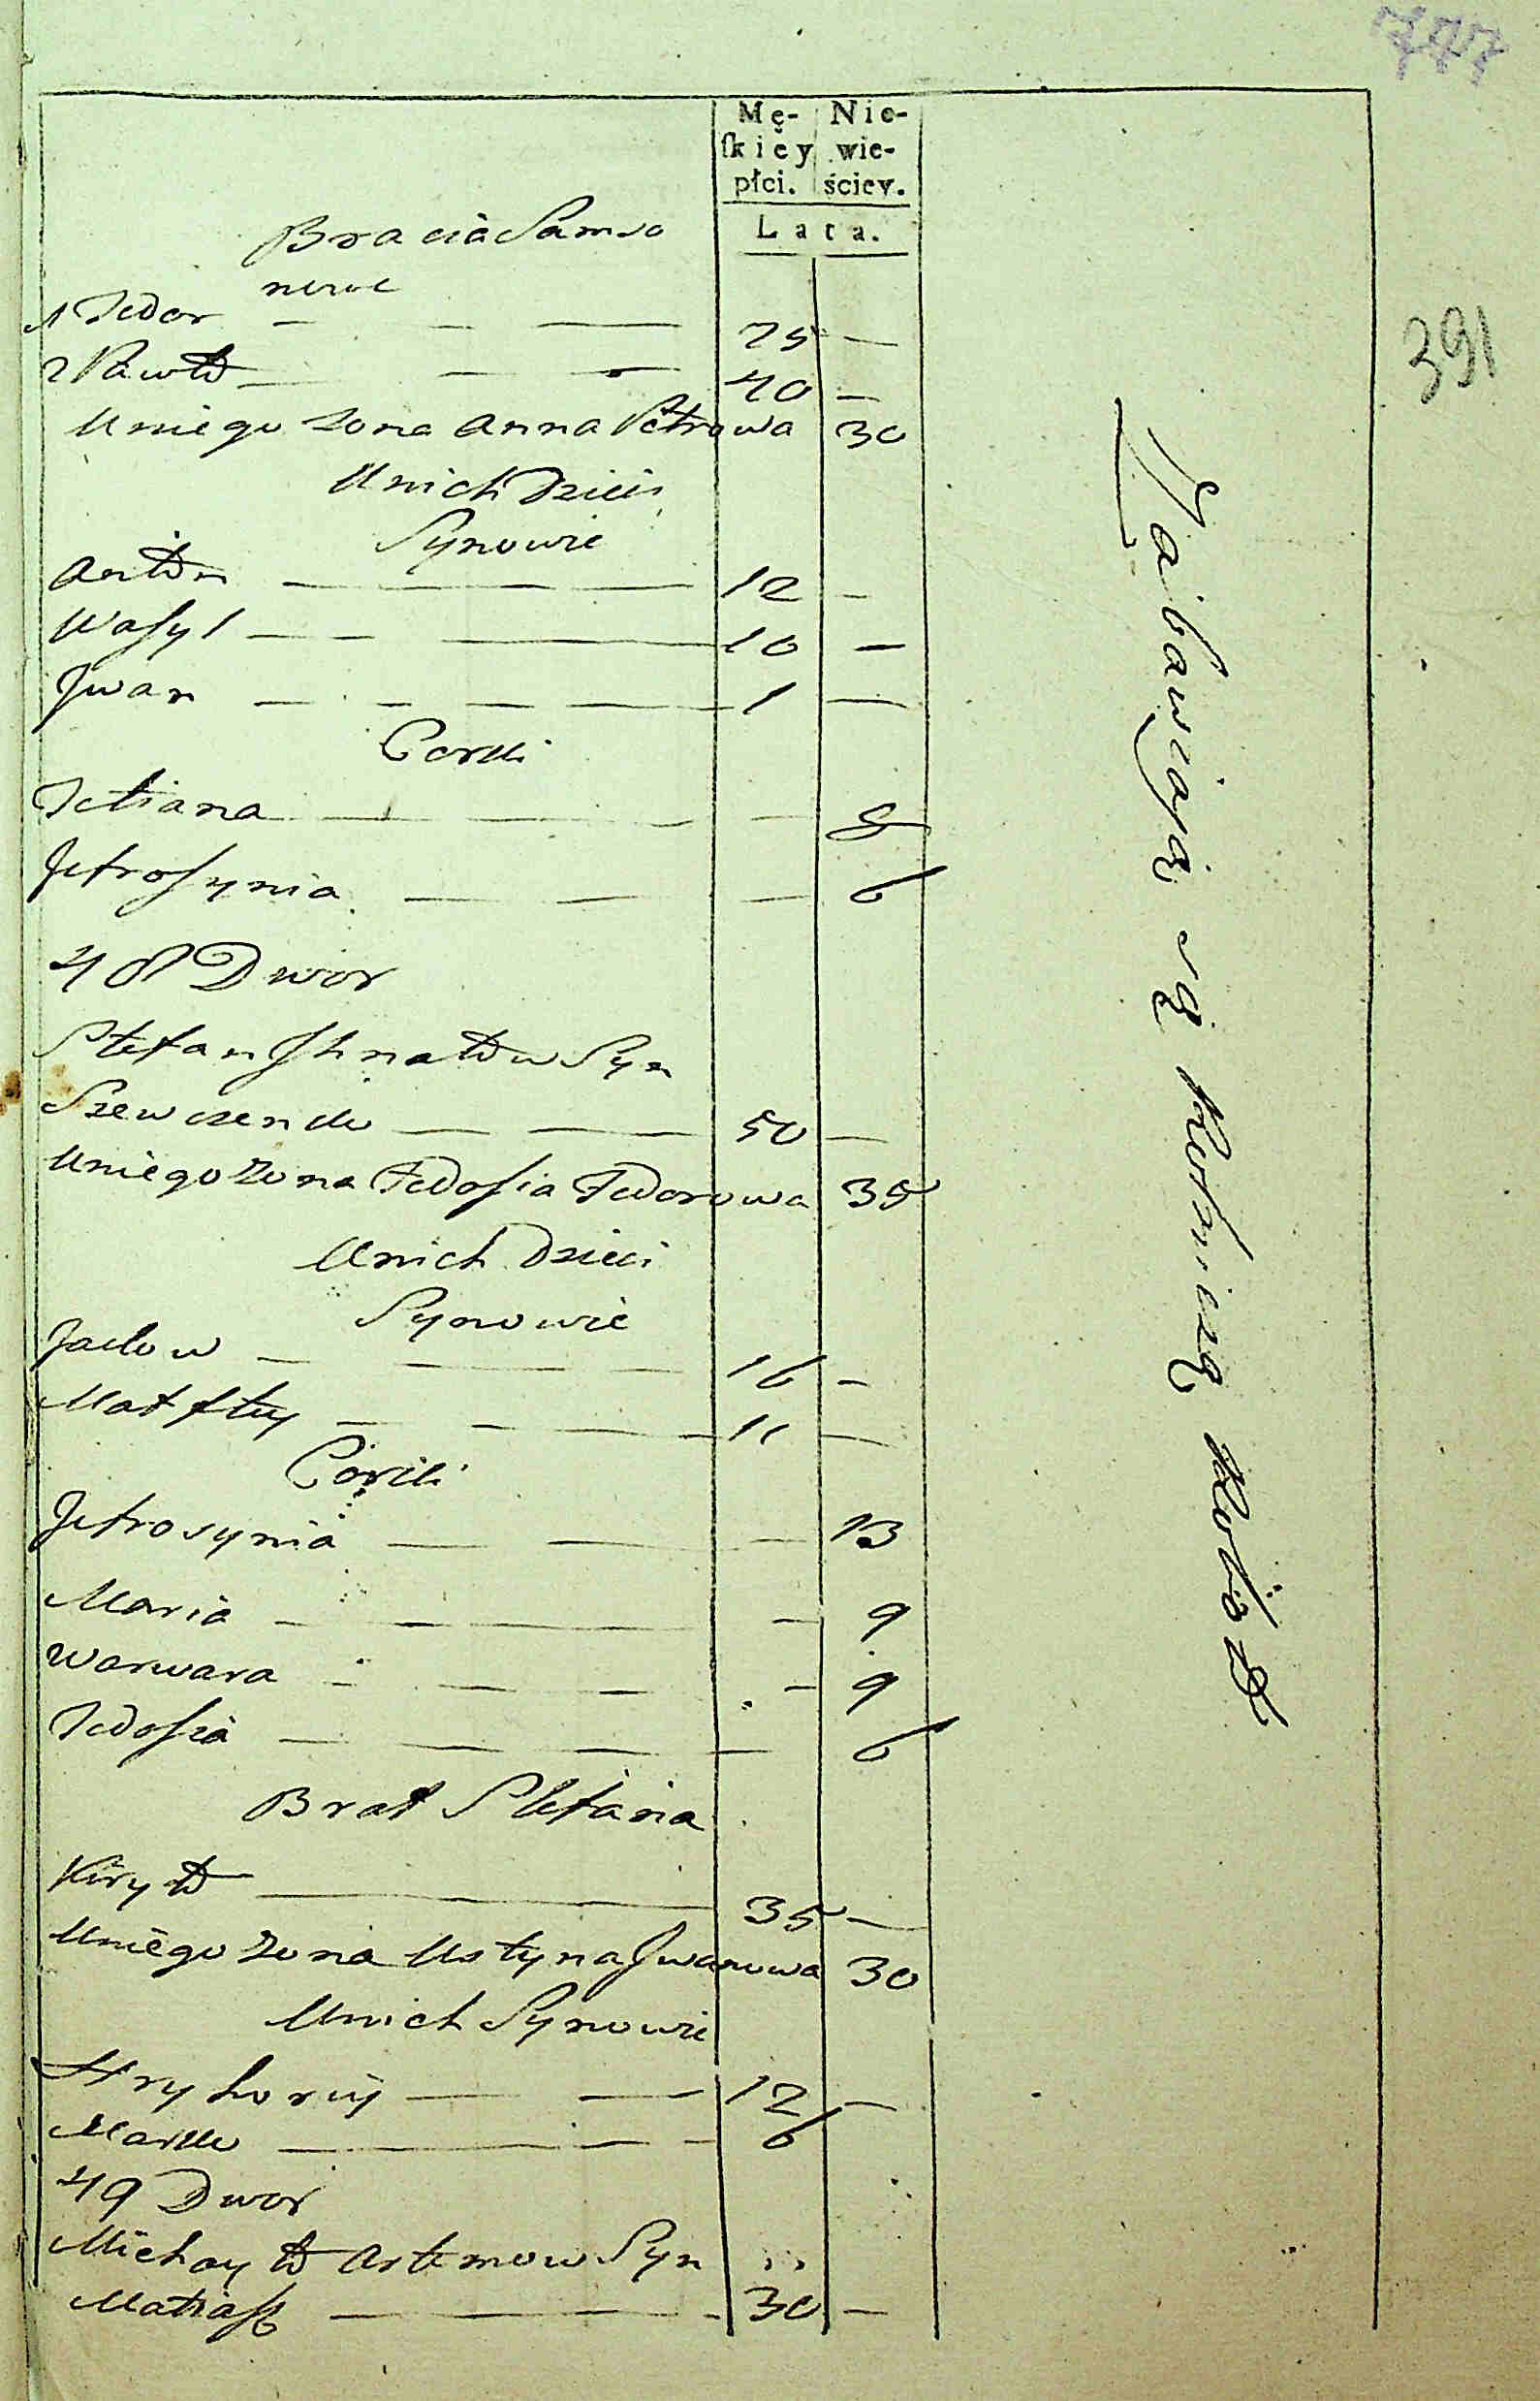 Mę- Nie-
ſkiey wie-
płci. ściey.
Lata.
Bracia Samso
nowe
1 Fedor — — — 25 —
2 Pawło — — — 40 —
Uniego Zona Anna Petrowa 30
Unich Dzieci
Synowie
Anton — — — 12 —
Wasyl — — — 10 —
Jwan — — — 1 —
Corki
Tetiana — — — — 8
Jefrosynia — — — 6
48 Dwor
Stefan Jhnatow Syn
Szewczenko — — 50 —
Uniego Zona Fedosia Fedorowa 35
Unich Dzieci
Synowie
Jackow — — — 16 —
Matftey — — — 11 —
Córki
Jefrosynia — — — 13
Maria — — — — 9
Warwara — — — — 9
Fedosia — — — — 6
Brat Stefana
Kiryło — 35 —
Uniego Zona Ustyna Jwanowa 30
Unich Synowie
Hryhorii — — 12 —
Marko — — — 6
49 Dwor
Michayło Artemow Syn
Matiasz — — — 30 —
Zabawiają się Rolniczą Robotą
391